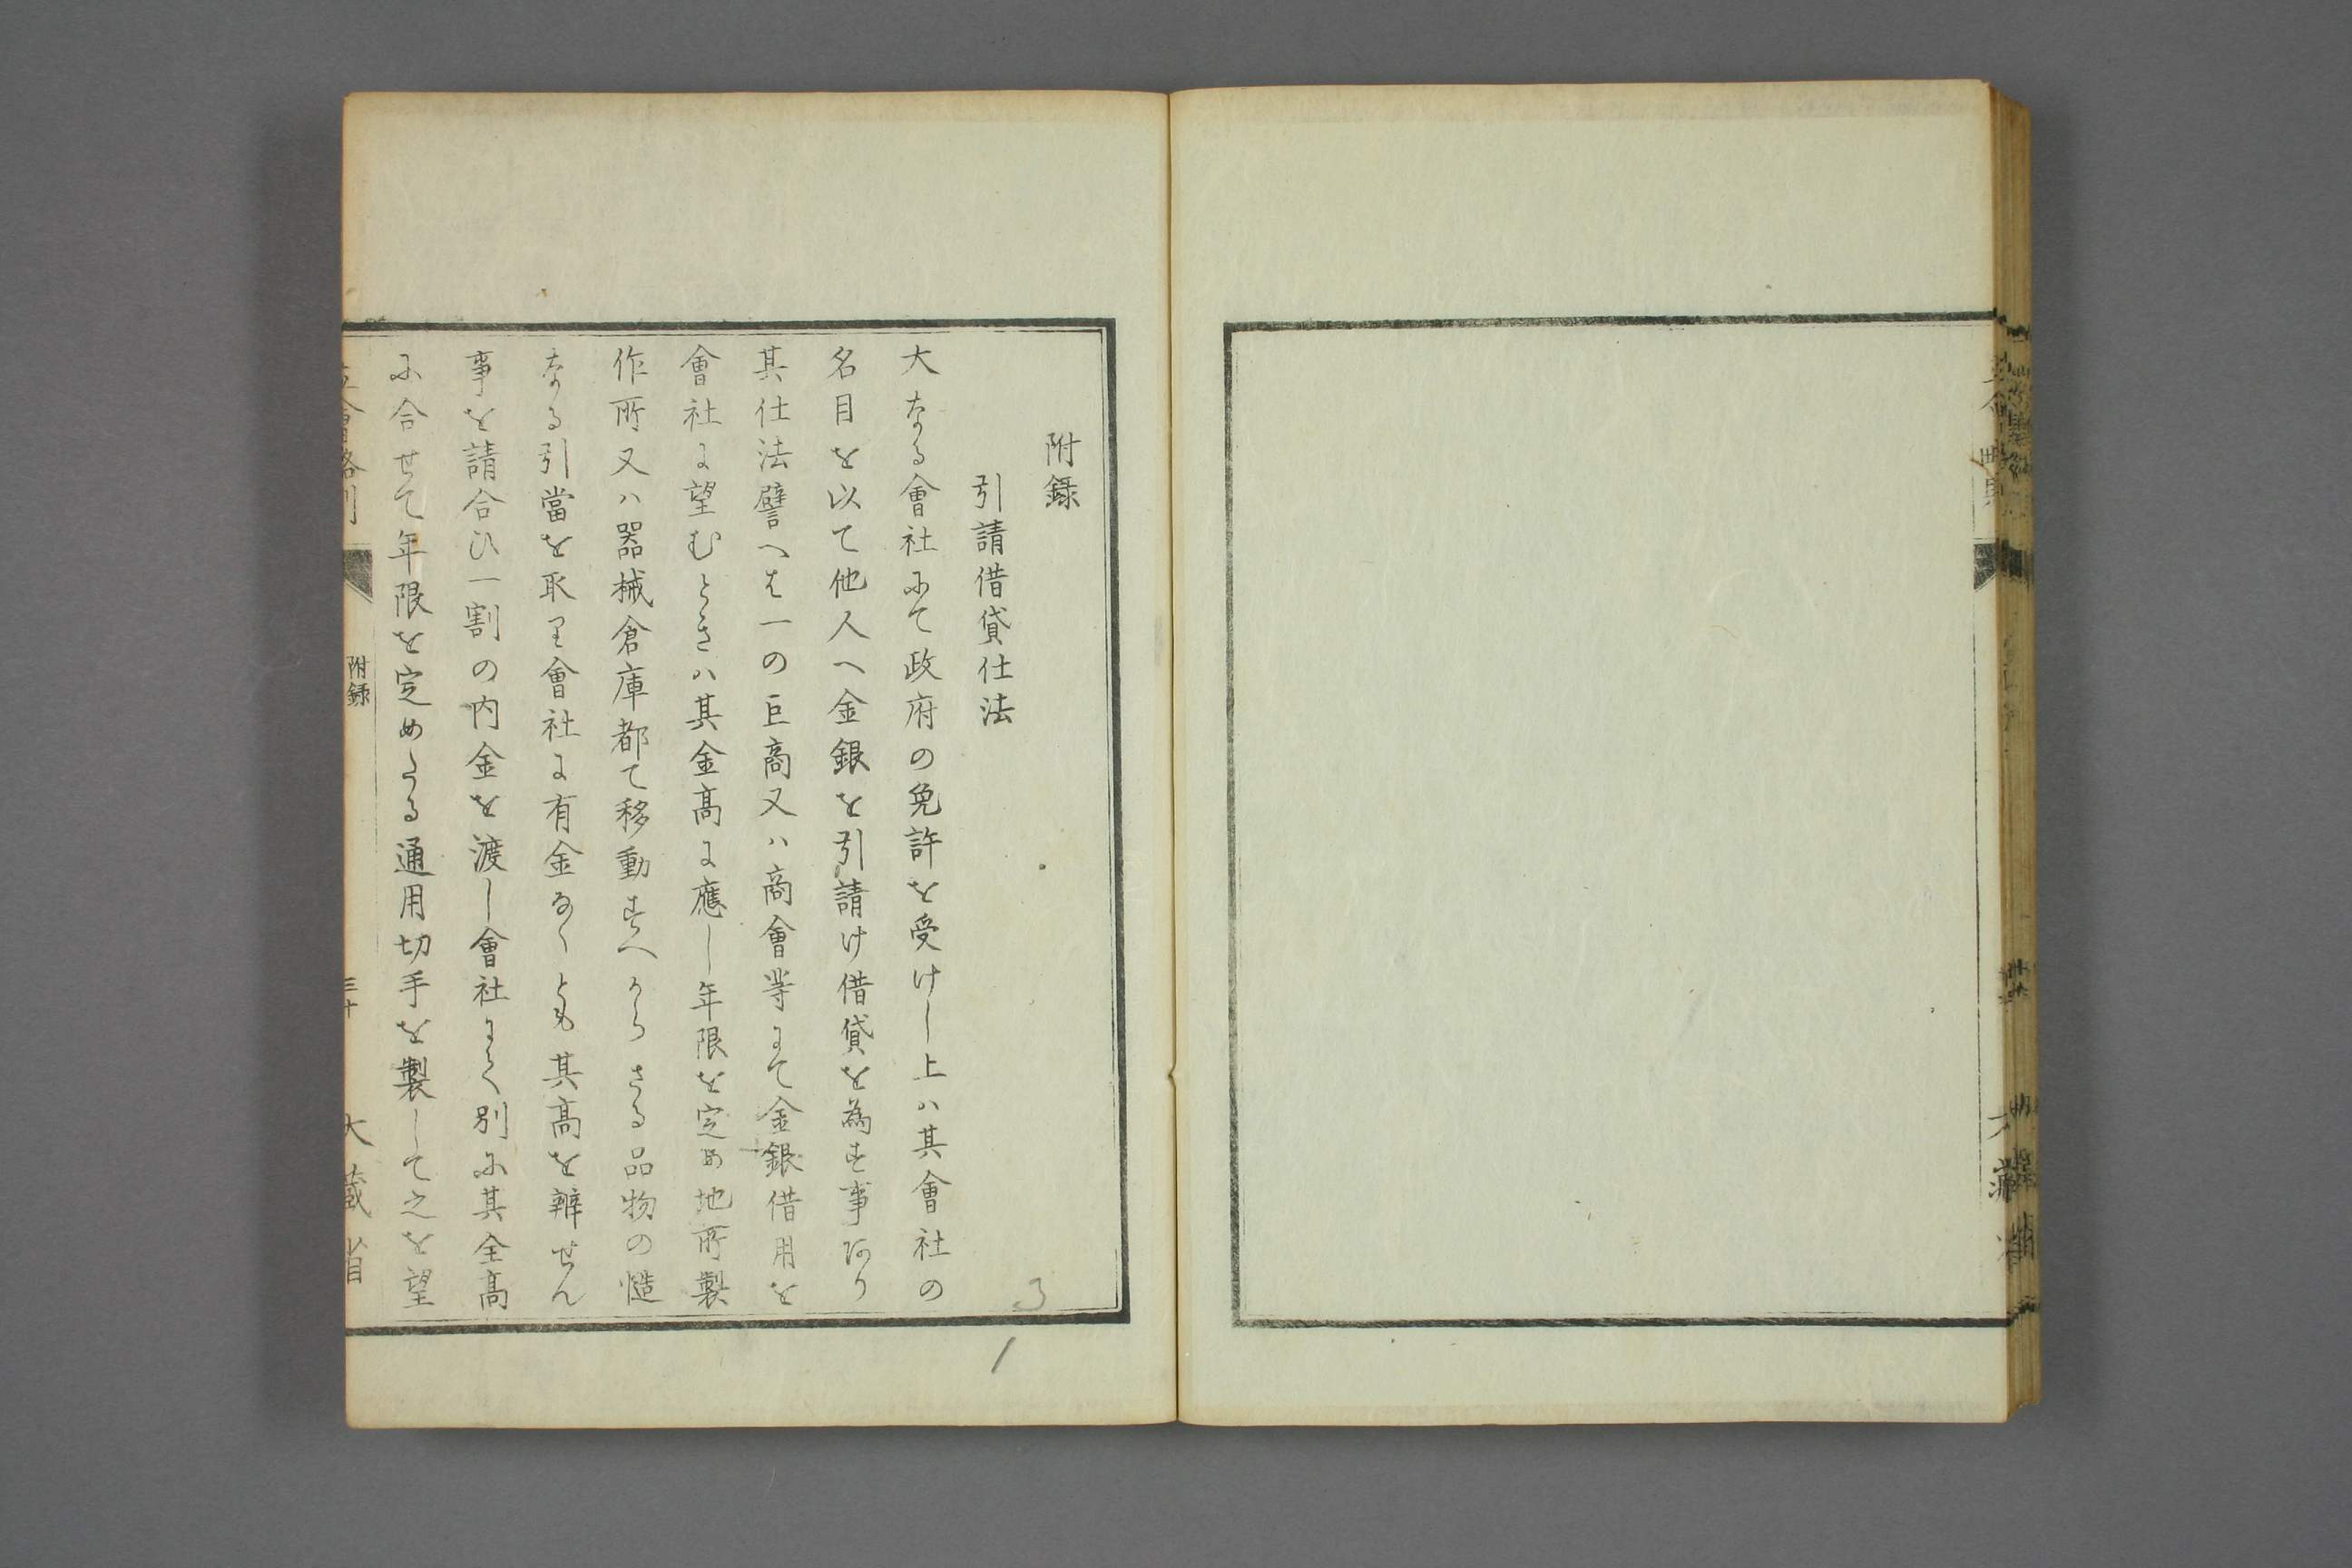 附録
引請借貸仕法
大なる會社にて政府の免許を受けし上ハ其會社の
名目を以て他人へ金銀を引請け借貸を為す事あり
其仕法譬へは一の巨商又ハ商會等にて金銀借用を
會社に望むときハ其金高に應し年限を定め地所製
作所又ハ器械倉庫都て移動すへからさる品物の慥
なる引當を取り會社に有金なくとも其高を辨せん
事を請合ひ一割の内金を渡し會社にて別に其全高
に合せて年限を定めたる通用切手を製して之を望
立會略則
附録
三十
大藏省